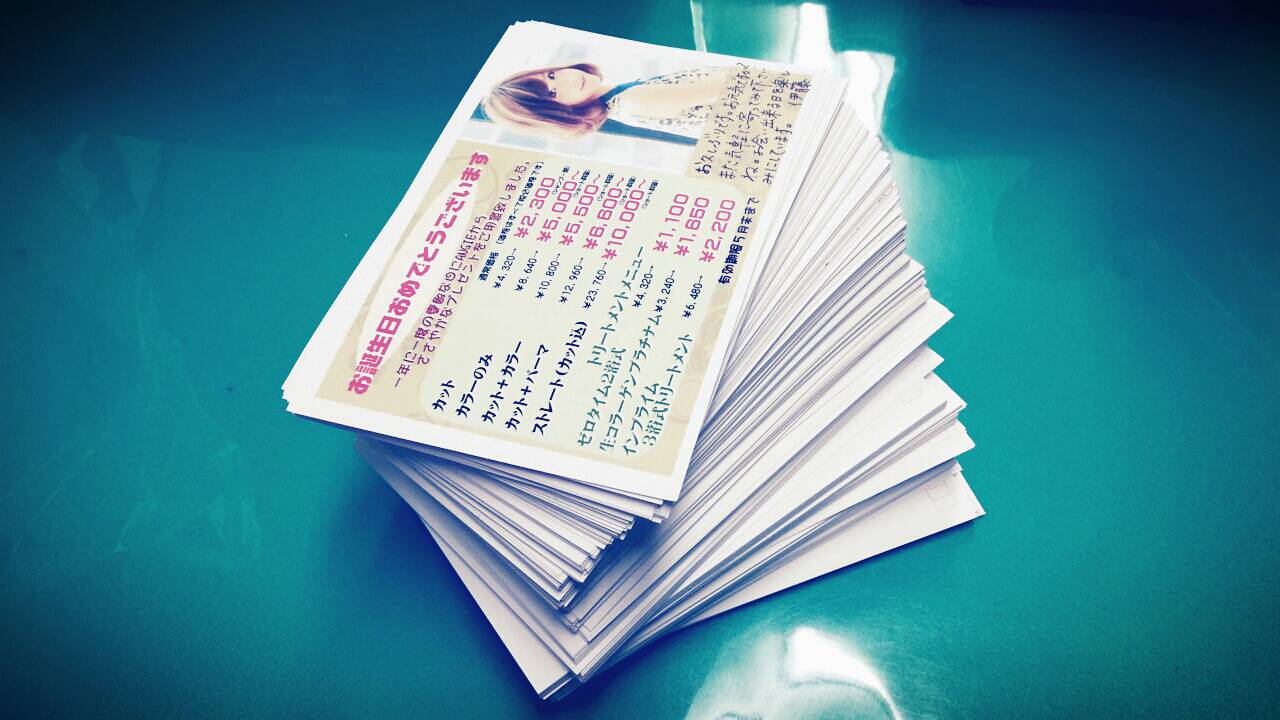 お誕生日おめでとうございます
一年に一度の素敵な日にANGIEから
ささやかなプレゼントをご用意致しました。
通常価格 (価格はすべて税込価格です)
カット ¥4,320→ ¥2,300 (シャンプー別)
カラーのみ ¥8,640→ ¥5,000〜 (ショート料金)
カット+カラー ¥10,800→ ¥5,500〜 (ショート料金)
カット+パーマ ¥12,960→ ¥6,600〜 (ショート料金)
ストレート(カット込) ¥23,760→ ¥10,000〜 (ショート料金)
トリートメントメニュー
ゼロタイム2浴式 ¥4,320→ ¥1,100
生コラーゲンプラチナム ¥3,240→ ¥1,650
インプライム
3浴式トリートメント ¥6,480→ ¥2,200
有効期限5月末まで
お久しぶりです。お元気ですか?
また気軽に寄ってみて下さい
ね。お会い出来る日を楽し
みにしています。 (伊藤)